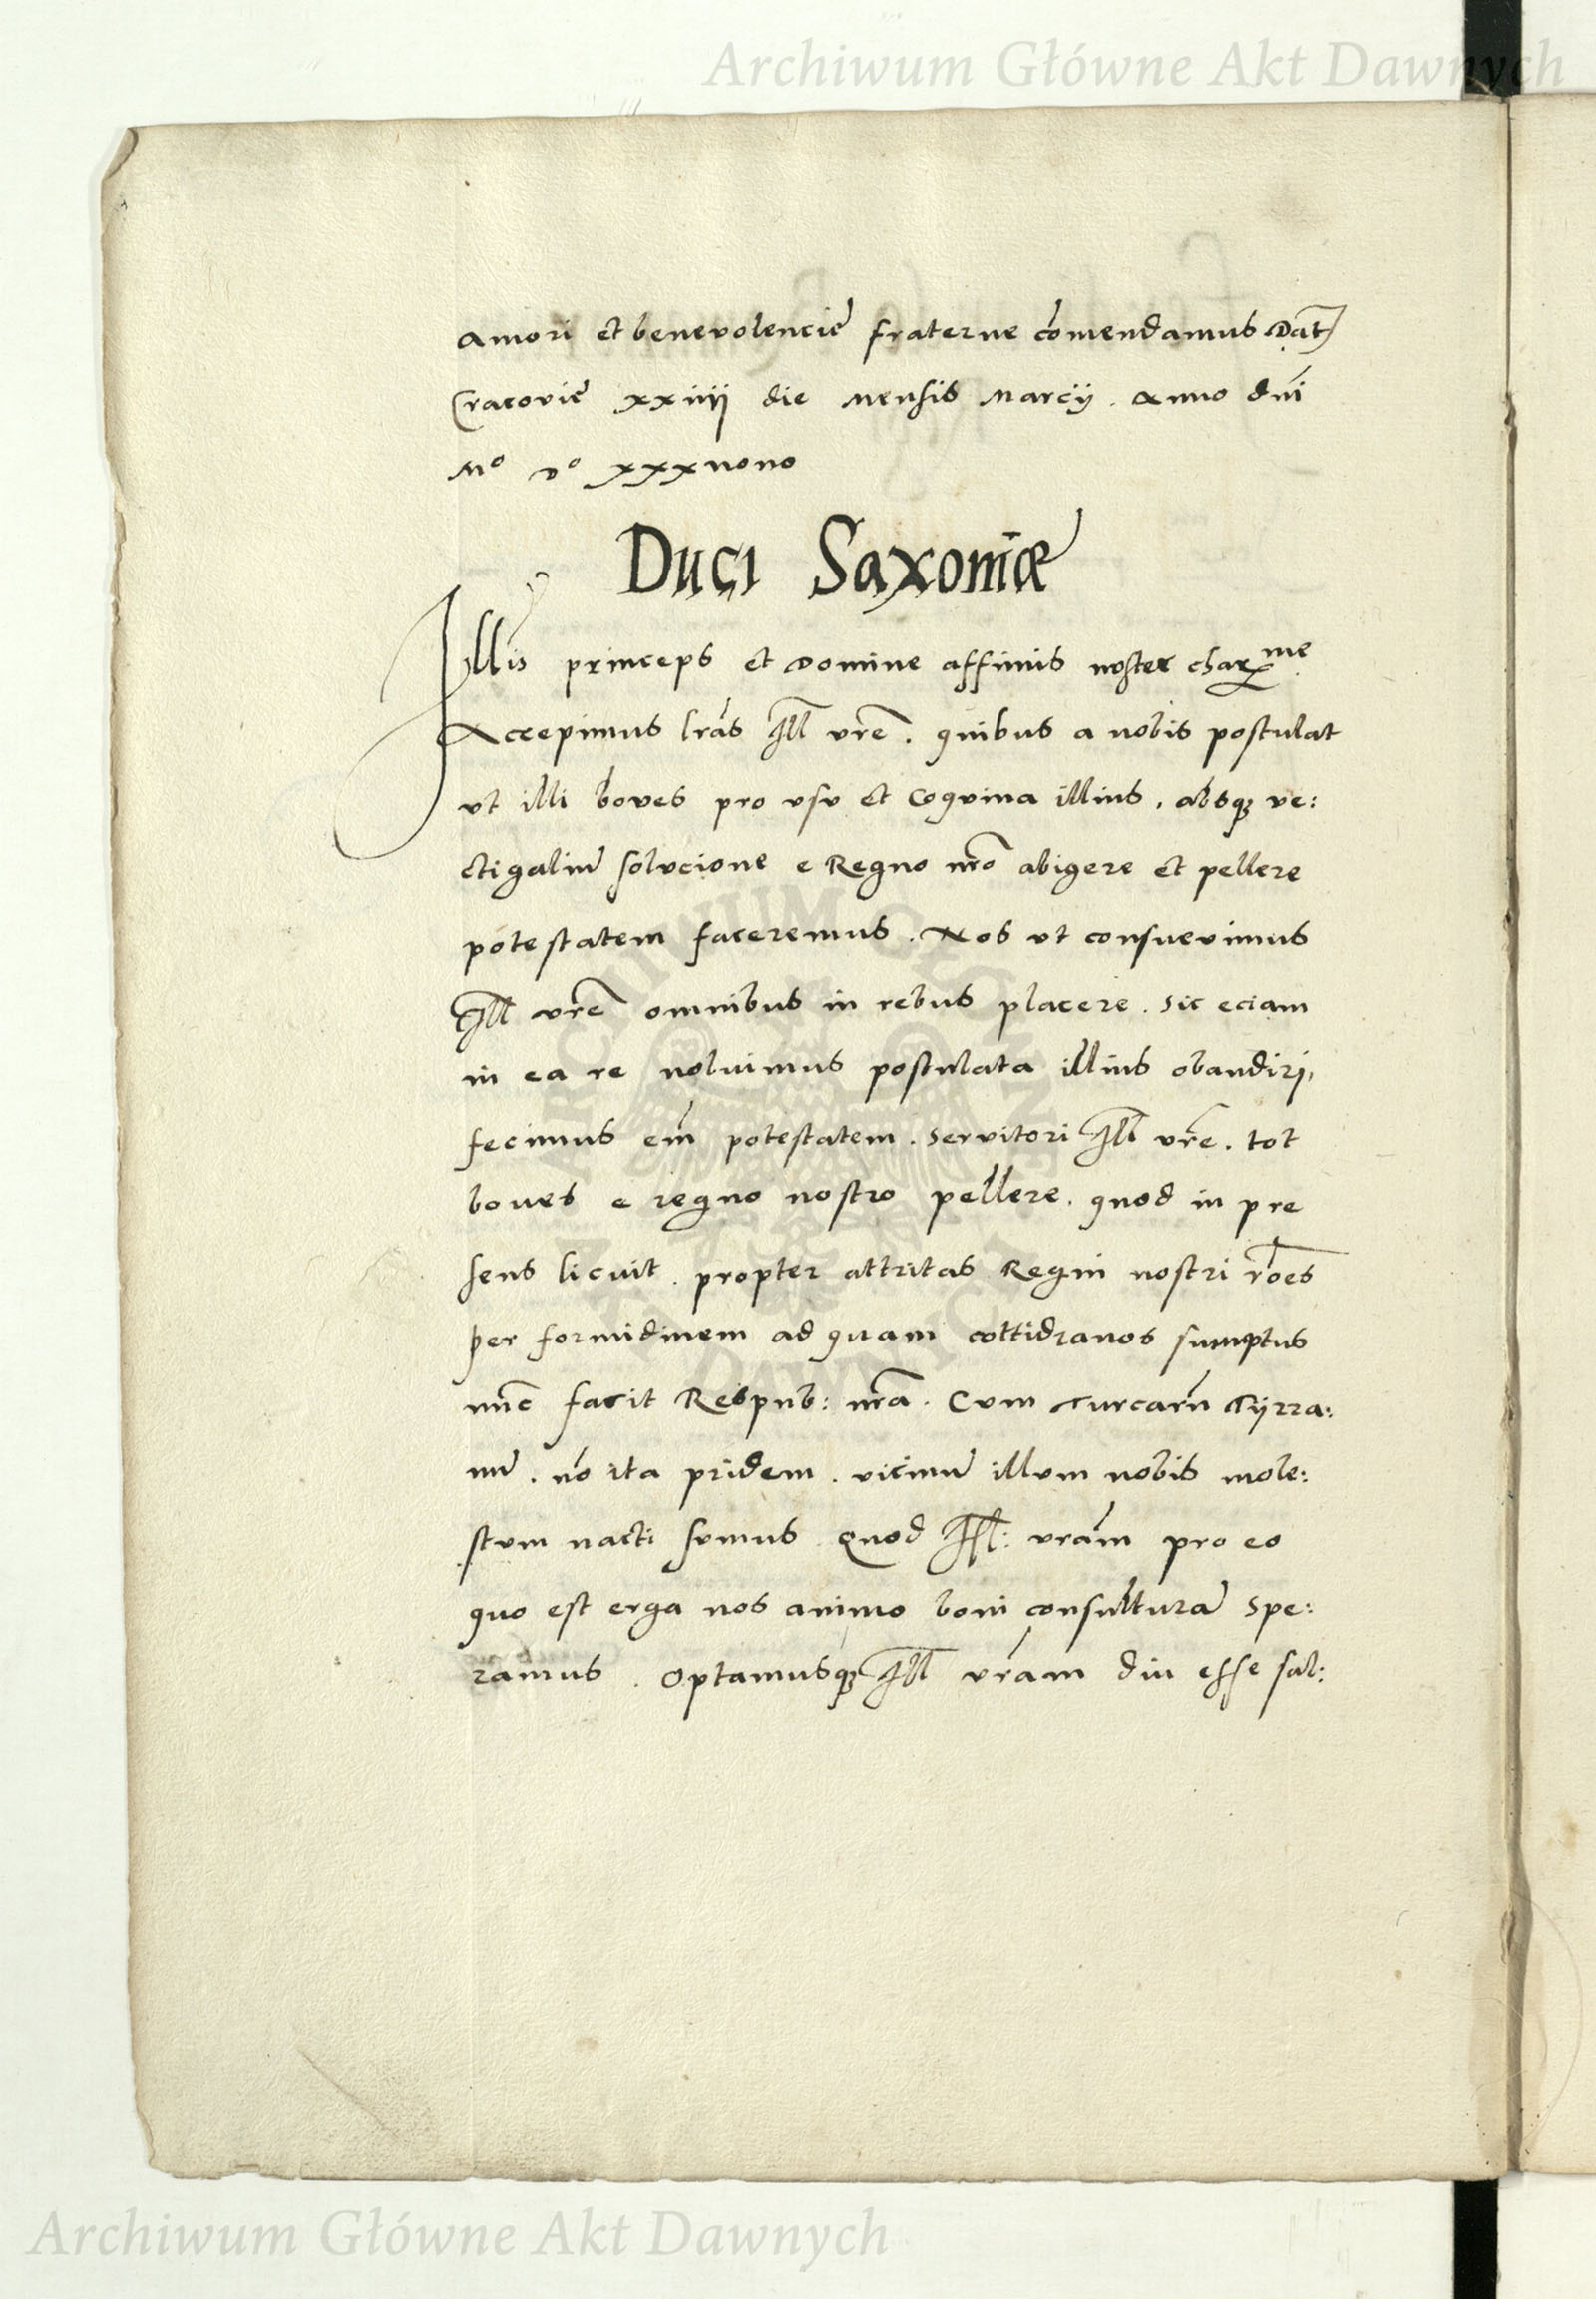 Archiwum Główne Akt Dawnych
Amori et benevolencie fraterne comendamus Dat
Cracovie xxiiij die Mensis Marcij . Anno dni
Mo vo xxxnono
Duci Saxoniæ
Illis princeps et Domine affinis noster charme
Accepimus lras Ill vre . quibus a nobis postulat
vt illi boves pro vsv et coqvina illius , absqz ve:
ctigaliu solvcione e Regno nro abigere et pellere
potestatem faceremus . Nos vt consuevimus
Ill vre omnibus in rebus placere . sic eciam
in ea re noluimus postulata illius obaudiri,
fecimus em potestatem . servitori Ill vre . tot
boues e regno nostro pellere . quod in pre
sens licuit . propter attritas Regni nostri roes
per formidinem ad quam cottidianos sumptus
nnc facit Respub: nra . Cum Turcaru Tijrra:
nu . no ita pridem . vicinu illum nobis mole:
stvm nacti svmus . Quod Ill: vram pro eo
quo est erga nos animo boni consultura spe:
ramus . Optamusqz Ill vram diu esse sal:
ARCHIWUM GŁÓWNE
AKT DAWNYCH
Archiwum Główne Akt Dawnych